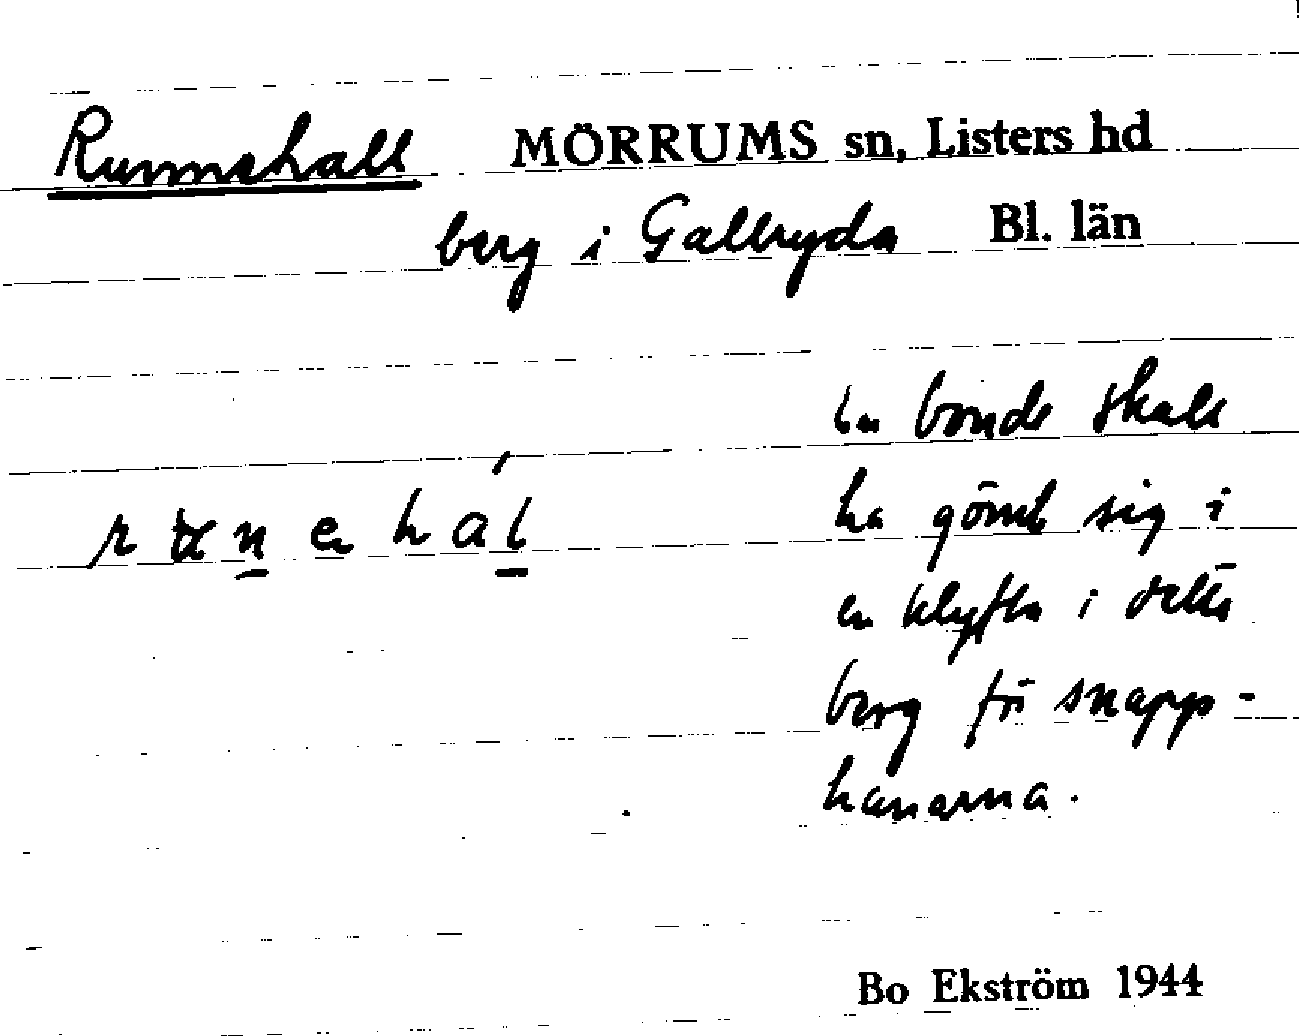 Runnehall MÖRRUMS sn, Listers hd
berg i Galleryda Bl. län
En bonde skall
ha gömt sig i
en klyfta i detta
berg för snapp-
hanarna.
Bo Ekström 1944